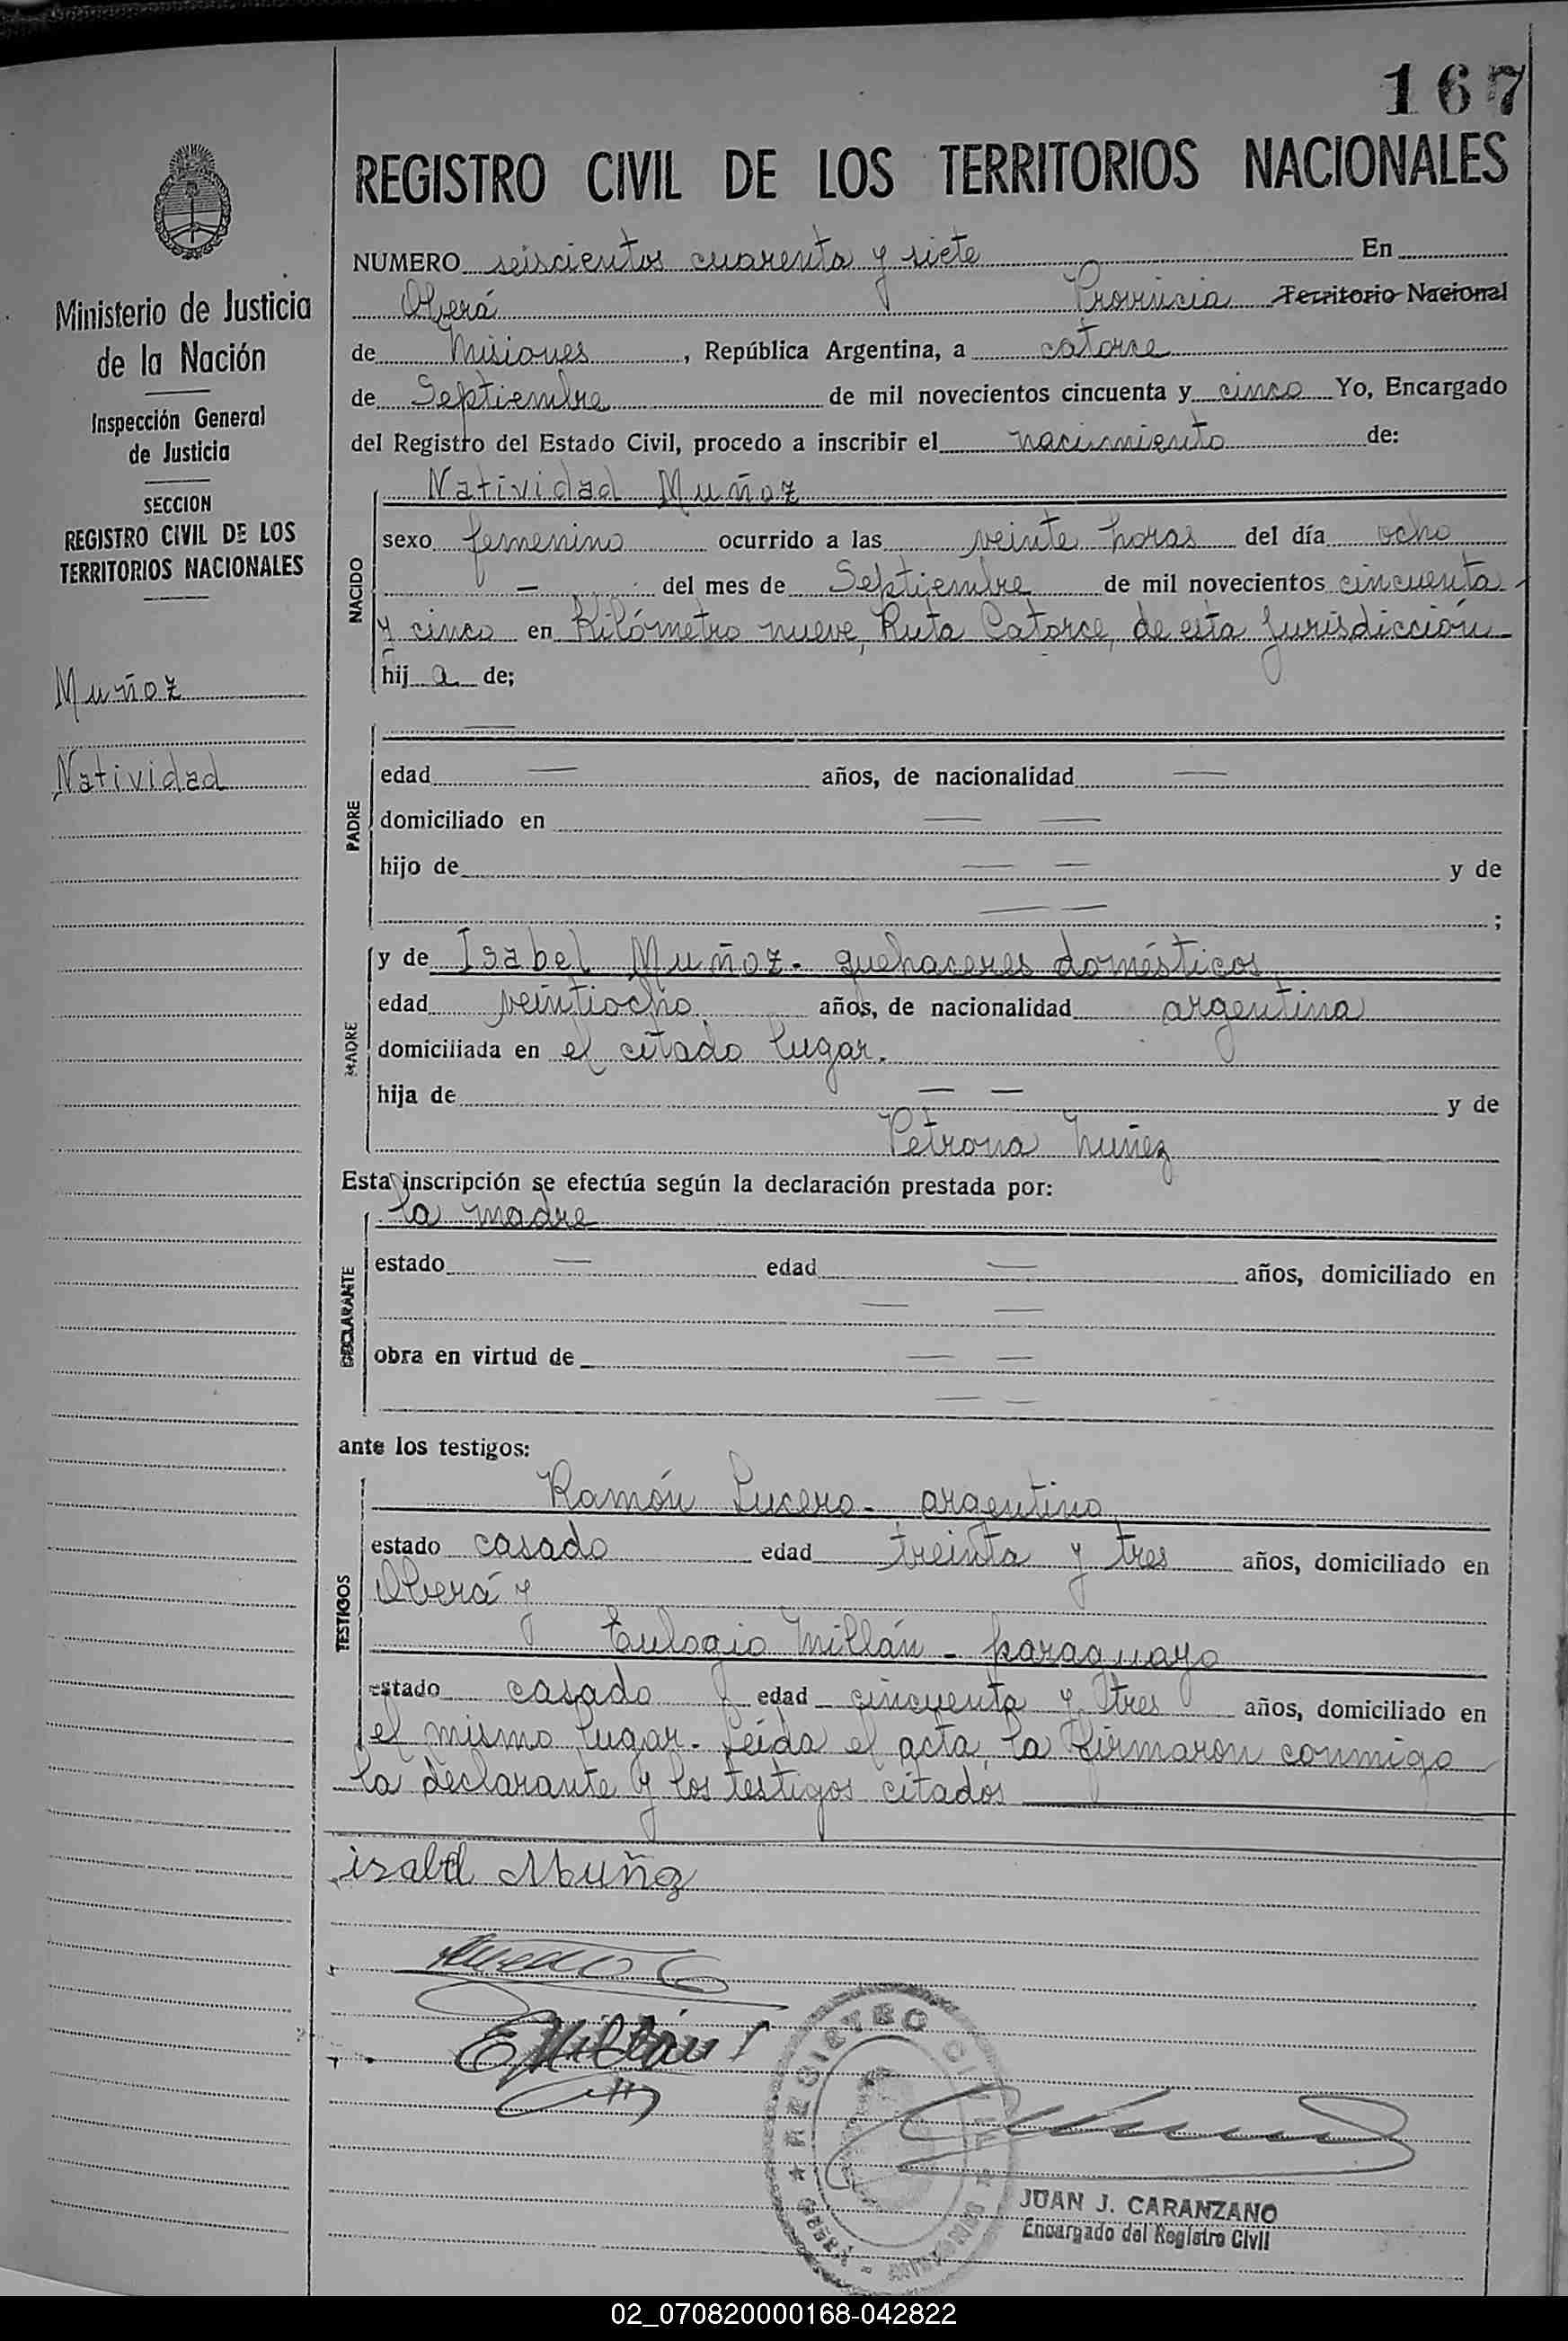 167
REGISTRO CIVIL DE LOS TERRITORIOS NACIONALES
Ministerio de Justicia
de la Nación
Inspección General
de Justicia
SECCION
REGISTRO CIVIL DE LOS
TERRITORIOS NACIONALES
Muñoz
Natividad
NUMERO seiscientos cuarenta y siete En
Oberá Provincia Territorio Nacional
de Misiones, República Argentina, a catorce
de Septiembre de mil novecientos cincuenta y cinco Yo, Encargado
del Registro del Estado Civil, procedo a inscribir el nacimiento de:
NACIDO
Natividad Muñoz
sexo femenino ocurrido a las veinte horas del día ocho
— del mes de Septiembre de mil novecientos cincuenta
y cinco en Kilómetro nueve, Ruta Catorce, de esta Jurisdicción
hij a de;
PADRE
—
edad — años, de nacionalidad —
domiciliado en — —
hijo de — — y de
— — ;
MADRE
y de Isabel Muñoz - quehaceres domésticos
edad veintiocho años, de nacionalidad argentina
domiciliada en el citado lugar.
hija de — — y de
Petrona Nuñez
Esta inscripción se efectúa según la declaración prestada por:
DECLARANTE
la madre
estado — edad — años, domiciliado en
— —
obra en virtud de — —
— —
ante los testigos:
TESTIGOS
Ramón Lucero - argentino
estado casado edad treinta y tres años, domiciliado en
Oberá y
Eulogio Millán - paraguayo
estado casado edad cincuenta y tres años, domiciliado en
el mismo lugar - Leída el acta, la firmaron conmigo
la declarante y los testigos citados
isabel Muñoz
EMillán
REGISTRO CIVIL
OBERÁ - MISIONES
JUAN J. CARANZANO
Encargado del Registro Civil
02_070820000168-042822